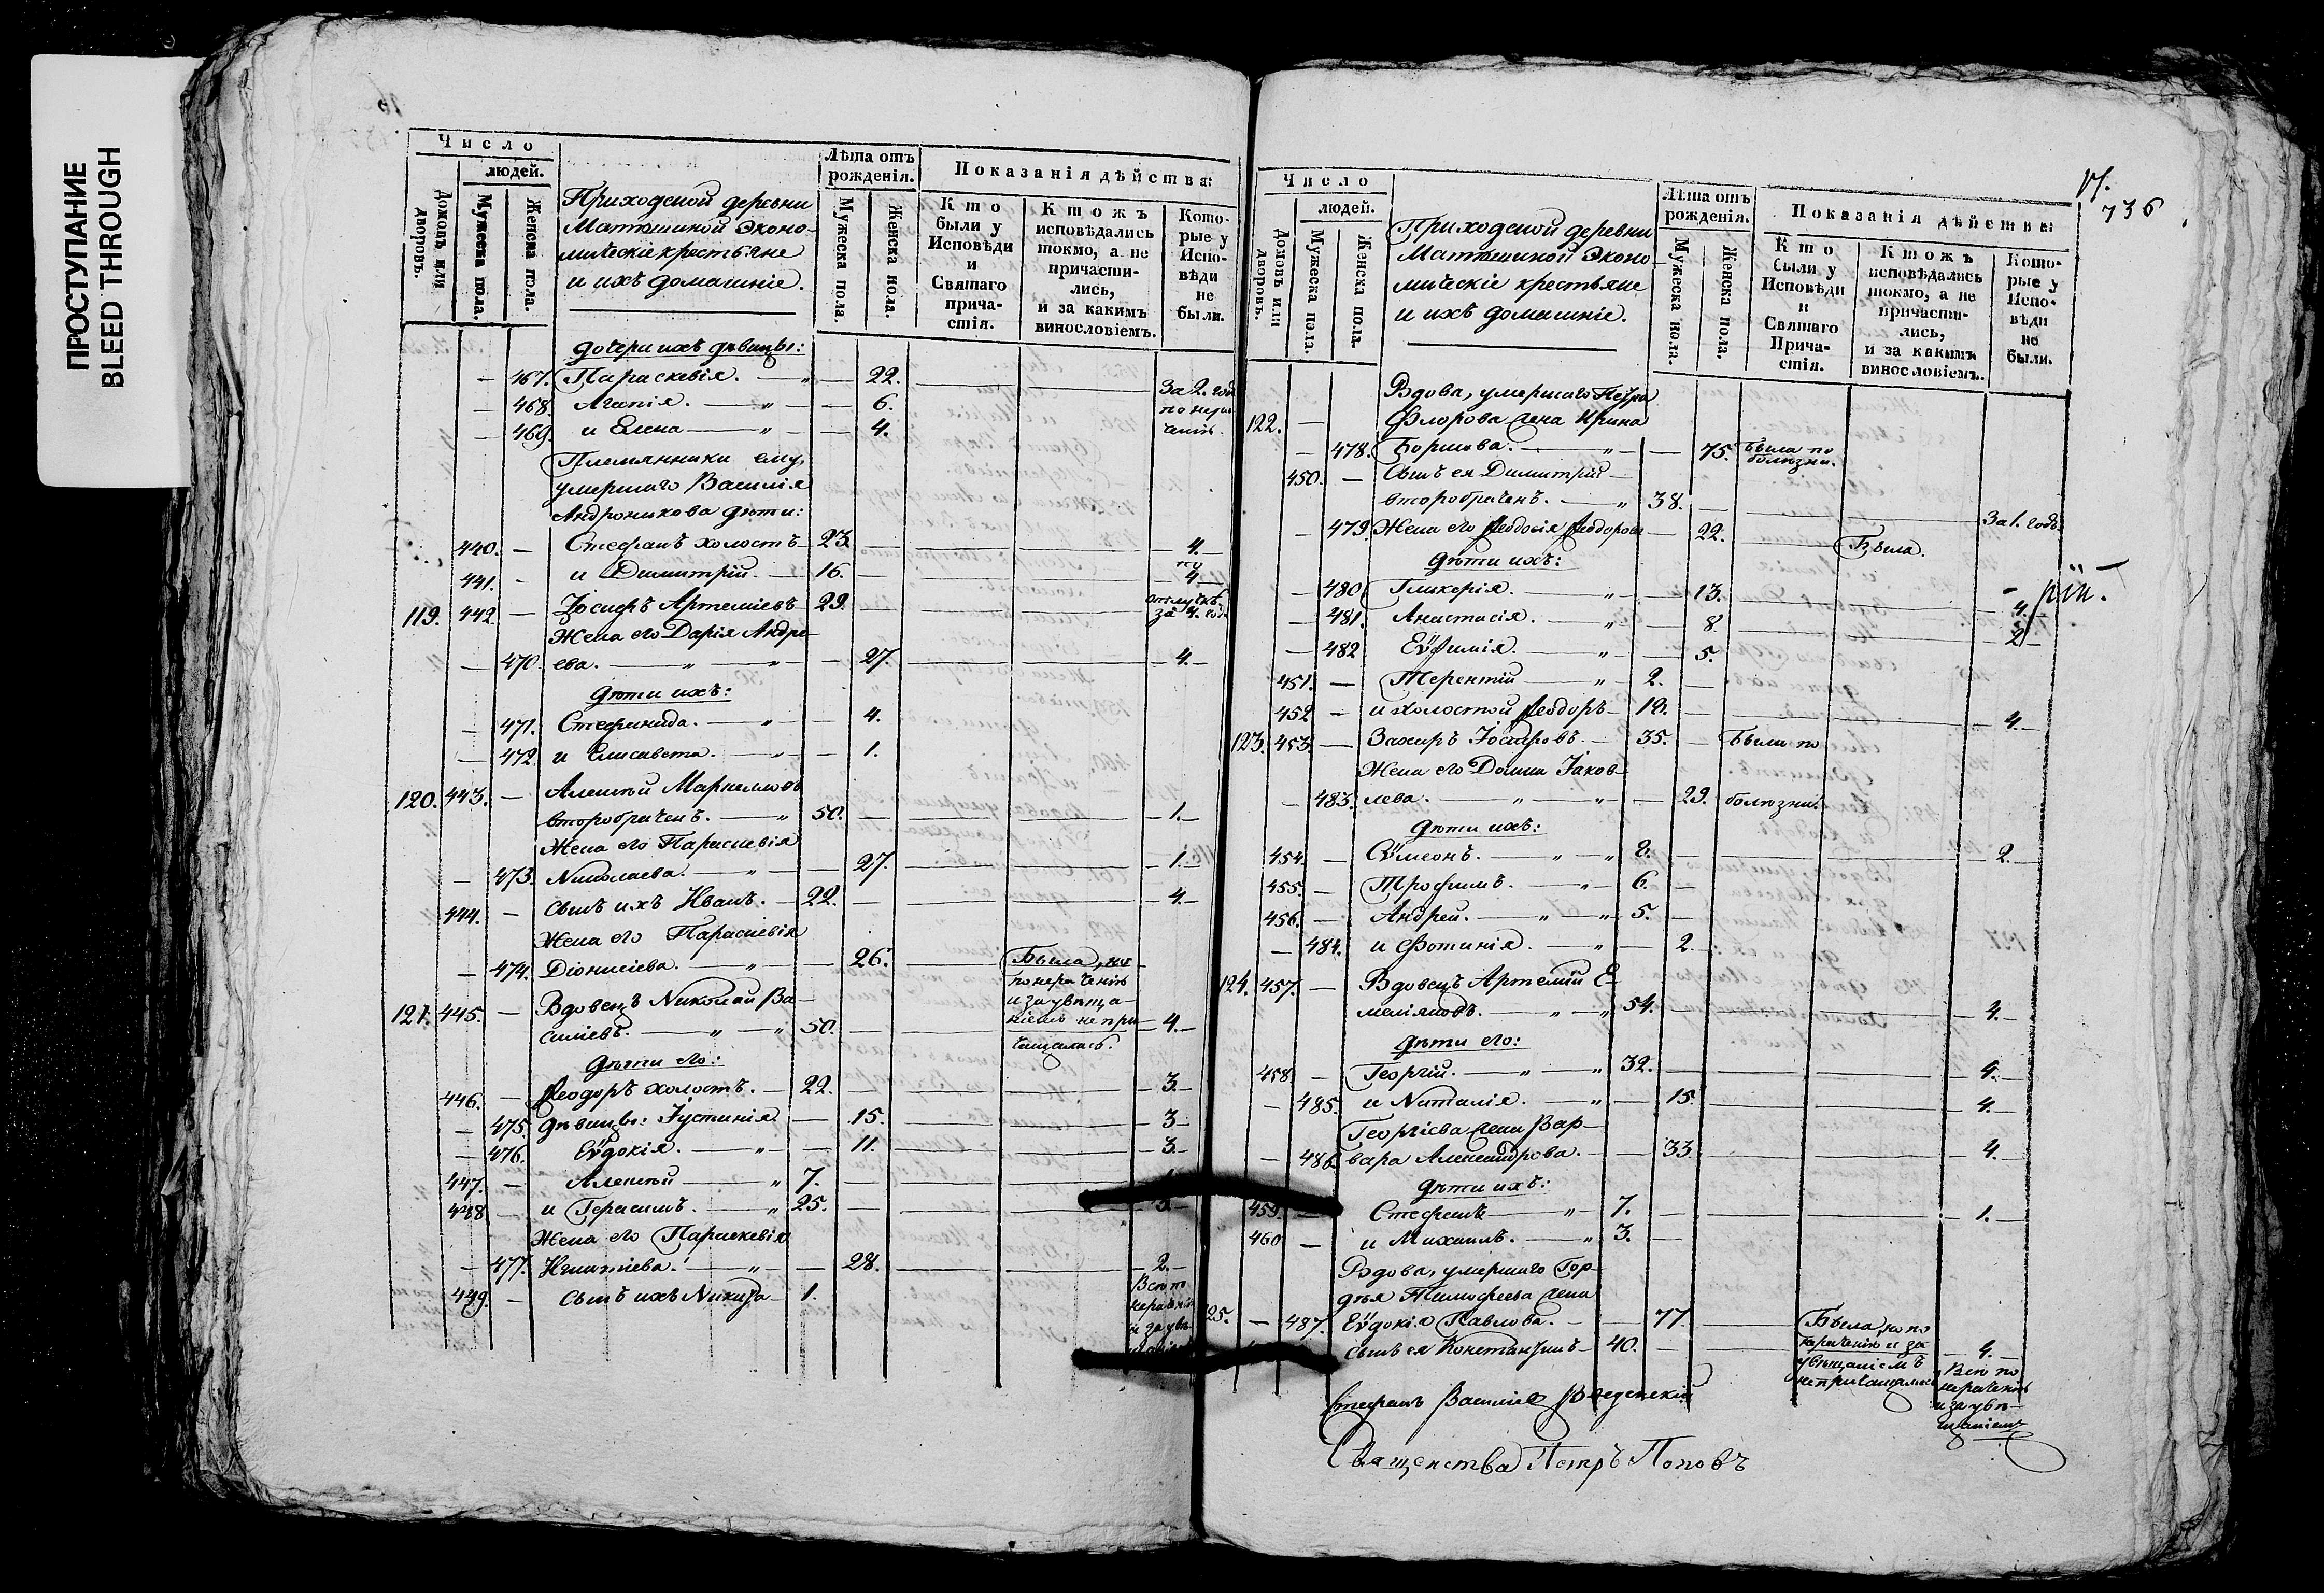 ПРОСТУПАНИЕ
BLEED THROUGH
Число
людей.
Домовъ или дворовъ.
Мужеска пола.
Женска пола.
Приходской деревни
Матюшиной Эконо-
мическіе крестьяне
и ихъ домашніе.
Лѣта отъ рожденія.
Мужеска пола.
Женска пола.
Показанія дѣйства:
Кто были у Исповѣди и Святаго причастія.
Ктожъ исповѣдались токмо, а не причастились, и за какимъ винословіемъ.
Которые у Исповѣди не были.
дочери ихъ дѣвицы:
467. Параскевія. 22.
468. Агапія. 6.
469. и Елена 4.
За 2. год
по нера
ченію
Племянники ему,
умершаго Василія
Андроникова дѣти:
440. Стефанъ холостъ 23. 4.
441. и Димитрій. 16. 4
119. 442. Іосифъ Артеміевъ 29. по отлучкѣ за 4. год.
Жена его Дарія Андре-
470. ева. 27. 4.
дѣти ихъ:
471. Стефанида. 4.
472. и Елисавета. 1.
120. 443. Алексѣй Маркелловъ
второбраченъ. 50. 1.
Жена его Параскевія
473. Николаева. 27. 1.
444. сынъ ихъ Иванъ. 22. 4.
Жена его Параскевія
474. Діонисіева. 26. Была, но
по нераченію
и за увѣща-
ніемъ не при-
чащалась.
121. 445. Вдовецъ Николай Ва-
силіевъ. 50. 4.
дѣти его:
446. Ѳеодоръ холостъ. 22. 3.
475. дѣвицы: Іустинія 15. 3
476. Еѵдокія. 11. 3.
447. Алексѣй 7.
448 и Герасимъ. 25. 3.
Жена его Параскевія
477. Игнатіева. 28. 2.
449. сынъ ихъ Никита 1.
Всѣ по
нераченію
и за увѣ-
136
Число
людей.
Домовъ или дворовъ.
Мужеска пола.
Женска пола.
Приходской деревни
Матюшиной Эконо-
мическіе крестьяне
и ихъ домашніе.
Лѣта отъ рожденія.
Мужеска пола.
Женска пола.
Показанія дѣйства:
Кто были у Исповѣди и Святаго Причастія.
Ктожъ исповѣдались токмо, а не причастились, и за какимъ винословіемъ.
Которые у Исповѣди не были.
Вдова, умершаго Петра
122. Флорова жена Ирина
478. Борисова. 75. Была по
болѣзни.
450. Сынъ ея Димитрій
второбраченъ. 38.
479. Жена его Ѳеодосія Ѳеодорова 22. Была. За 1. годъ
дѣти ихъ:
480 Гликерія. 13. 4.
481. Анастасія. 8. 2
482 Еѵфимія. 5.
451. Терентій 2.
452 и холостой Ѳеодоръ 19. 4
123. 453. Захаръ Іосифовъ. 35. Были по
Жена его Домна Іаков-
483. лева. 29. болѣзни.
дѣти ихъ:
454. Сѵмеонъ. 8. 2.
455. Трофимъ. 6.
456. Андрей. 5.
484. и Фотинія. 2.
124. 457. Вдовецъ Артемій Е-
меліановъ. 54. 4.
дѣти его:
458. Георгій. 32. 4.
485. и Наталія. 15. 4.
Георгіева жена Вар-
486. вара Александрова. 33. 4.
дѣти ихъ:
459. Стефанъ 7. 1.
460 и Михаилъ. 3.
Вдова, умершаго Гор-
дѣя Тимофеева жена
125. 487. Еѵдокія Павлова. 77. Была, но по
сынъ ея Константинъ 40. нераченію и за 4.
увѣщаніемъ
не причащалась
Всѣ по
нераченію
и за увѣ-
щаніемъ
Стефанъ Василіевъ Введенскій
Священства Петръ Поповъ